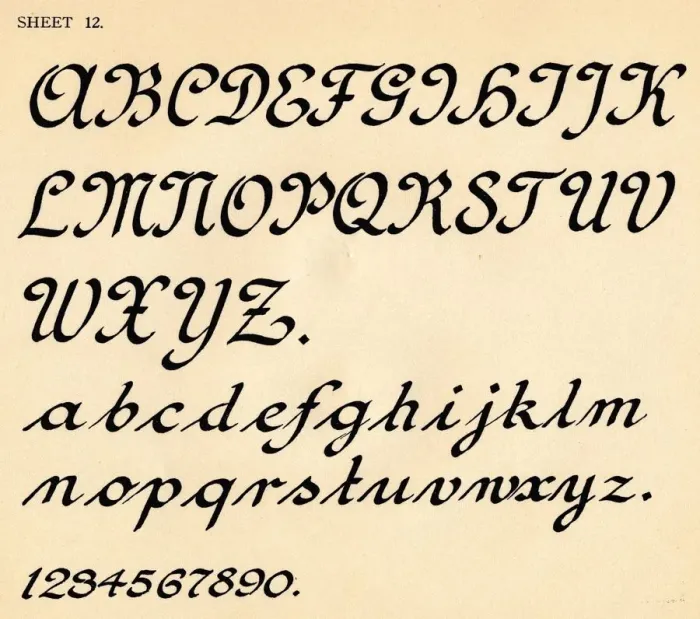 SHEET 12.
ABCDEFGHIJK
LMNOPQRSTUV
WXYZ.
abcdefghijklm
nopqrstuvwxyz.
1234567890.